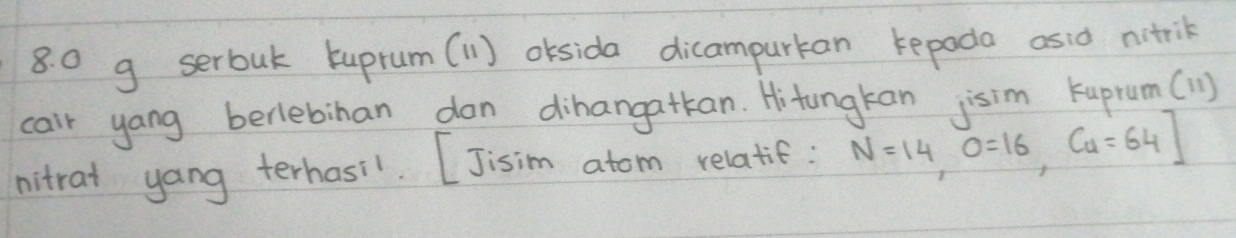 8.0 g serbuk kuprum (II) oksida dicampurkan kepada asid nitrik
cair yang berlebihan dan dihangatkan. Hitungkan jisim kuprum (II)
nitrat yang terhasil. [Jisim atom relatif : N=14, O=16, Cu=64]